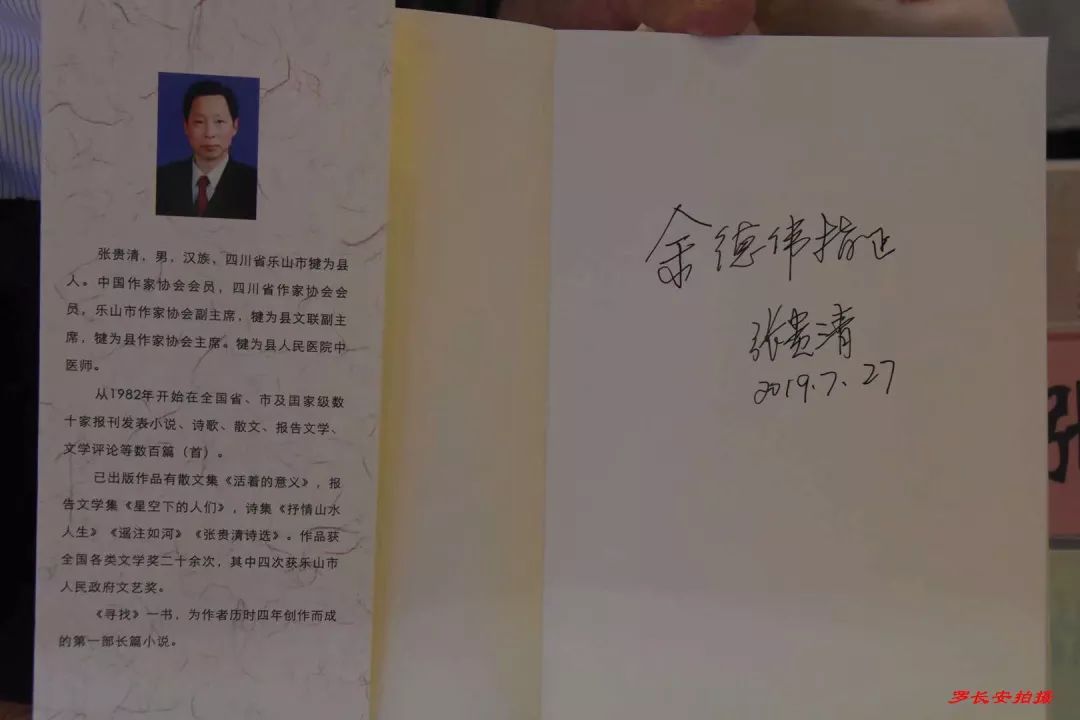 张贵清，男，汉族、四川省乐山市犍为县
人。中国作家协会会员，四川省作家协会会
员，乐山市作家协会副主席，犍为县文联副主
席，犍为县作家协会主席。犍为县人民医院中
医师。
从1982年开始在全国省、市及国家级数
十家报刊发表小说、诗歌、散文、报告文学、
文学评论等数百篇（首）。
已出版作品有散文集《活着的意义》，报
告文学集《星空下的人们》，诗集《抒情山水
人生》《遥注如河》《张贵清诗选》。作品获
全国各类文学奖二十余次，其中四次获乐山市
人民政府文艺奖。
《寻找》一书，为作者历时四年创作而成
的第一部长篇小说。
余德伟指正
张贵清
2019.7.27
罗长安拍摄